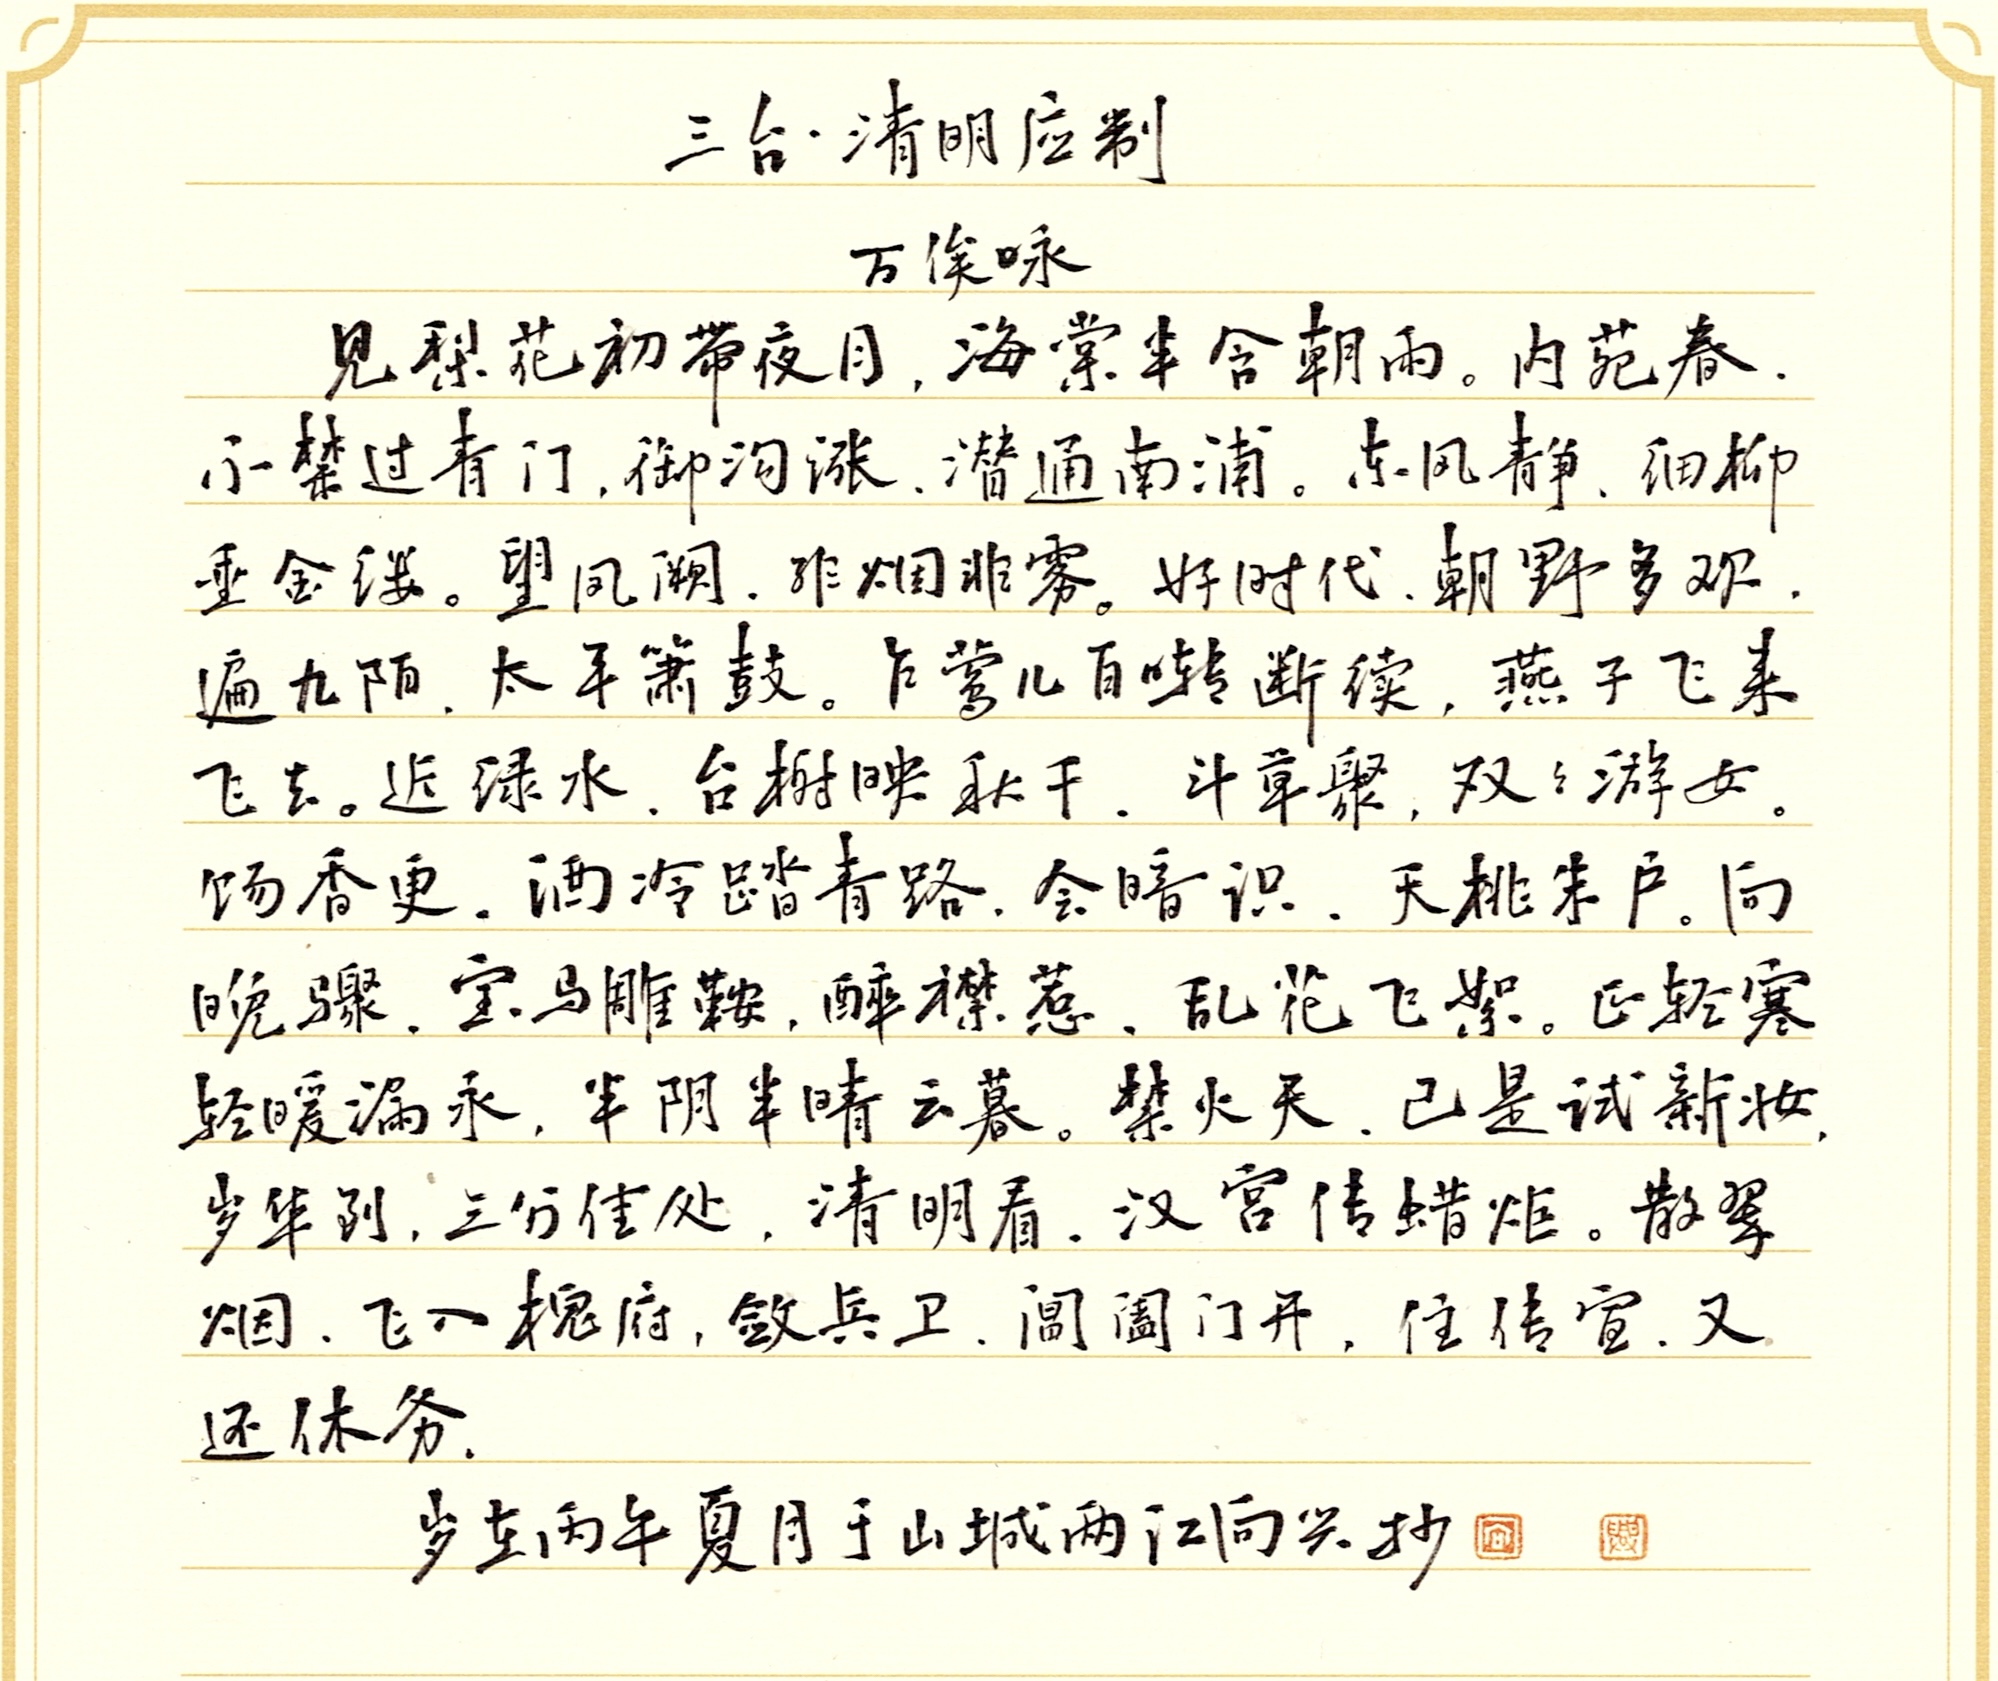 三台·清明应制
万俟咏
见梨花初带夜月，海棠半含朝雨。内苑春、
不禁过青门，御沟涨、潜通南浦。东风静、细柳
垂金缕。望凤阙、非烟非雾。好时代、朝野多欢，
遍九陌、太平箫鼓。乍莺儿百啭断续，燕子飞来
飞去。近绿水、台榭映秋千，斗草聚，双々游女。
饧香更、酒冷踏青路，会暗识、夭桃朱户。向
晚骤、宝马雕鞍，醉襟惹、乱花飞絮。正轻寒
轻暖漏永，半阴半晴云暮。禁火天、已是试新妆，
岁华到，三分佳处，清明看、汉宫传蜡炬。散翠
烟、飞入槐府，敛兵卫、阊阖门开，住传宣、又
还休务。
岁在丙午夏月于山城两江向兴抄